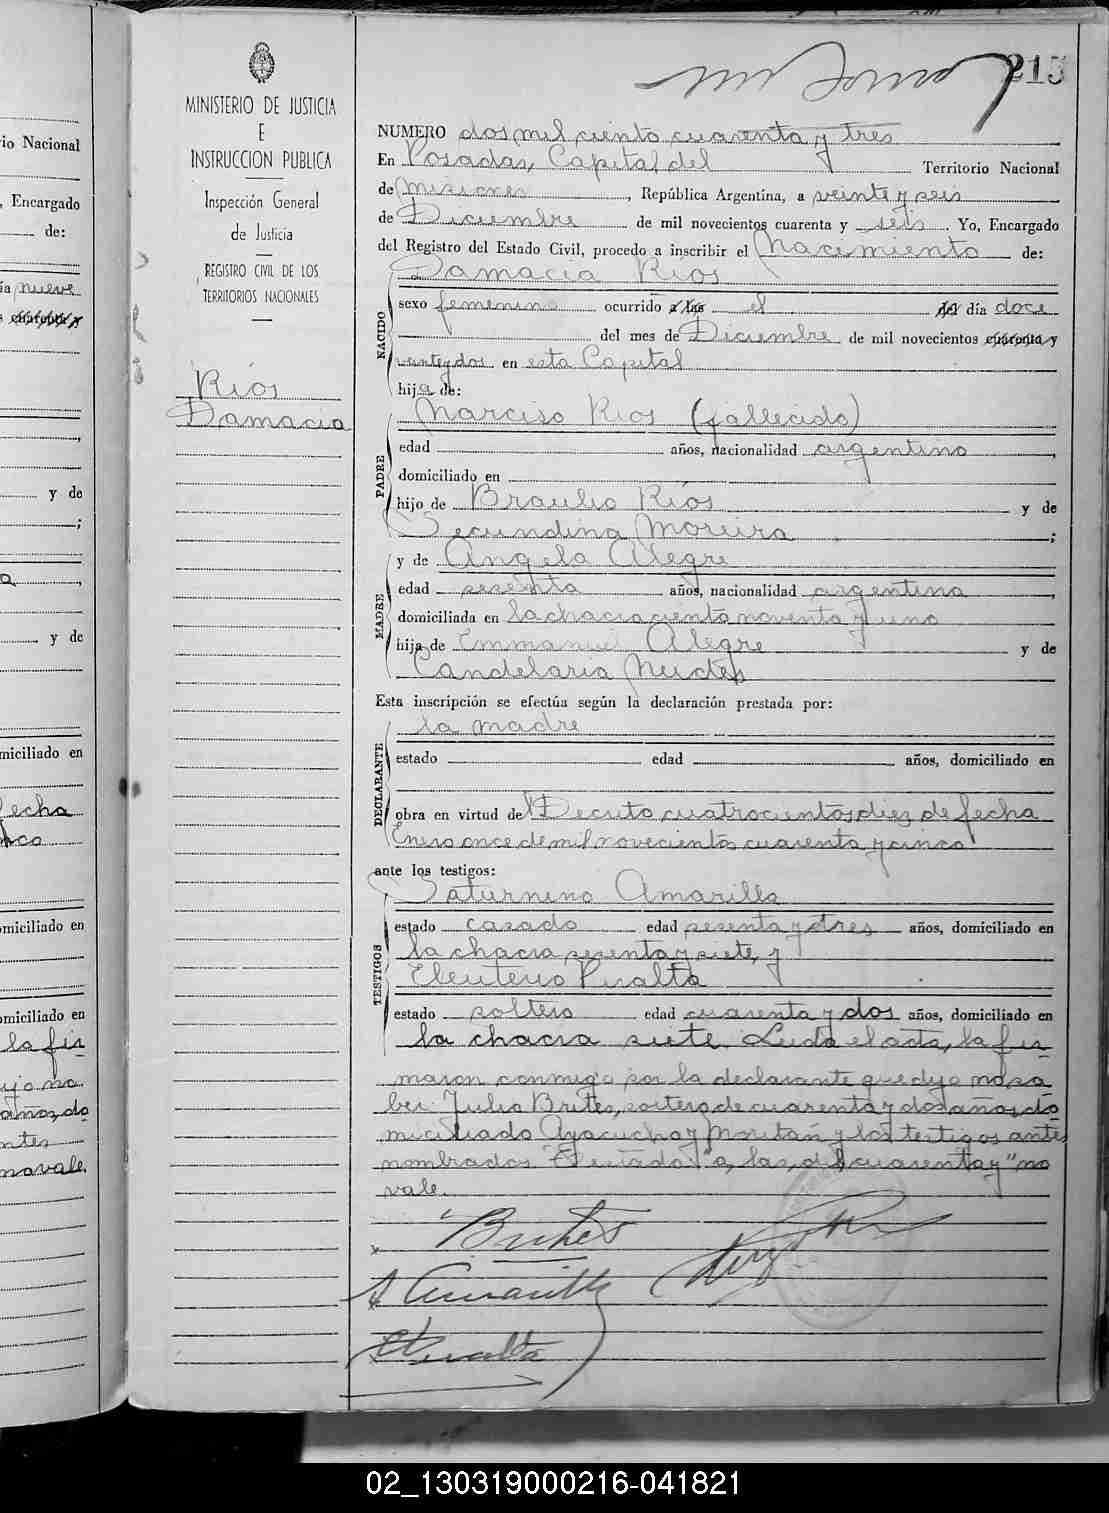 215
MINISTERIO DE JUSTICIA
E
INSTRUCCION PUBLICA
Inspección General
de Justicia
REGISTRO CIVIL DE LOS
TERRITORIOS NACIONALES
Ríos
Damacia
NUMERO dos mil ciento cuarenta y tres
En Posadas, Capital del Territorio Nacional
de Misiones, República Argentina, a veinte y seis
de Diciembre de mil novecientos cuarenta y seis. Yo, Encargado
del Registro del Estado Civil, procedo a inscribir el Nacimiento de:
NACIDO
Damacia Ríos
sexo femenino ocurrido a las el del día doce
del mes de Diciembre de mil novecientos cuarenta y
veinte y dos en esta Capital
hija de:
PADRE
Narciso Rios (fallecido)
edad años, nacionalidad argentino,
domiciliado en
hijo de Braulio Ríos y de
Secundina Moreira;
MADRE
y de Angela Alegre
edad sesenta años, nacionalidad argentina,
domiciliada en la chacra ciento noventa y uno
hija de Emmanuel Alegre y de
Candelaria
Esta inscripción se efectúa según la declaración prestada por:
DECLARANTE
la madre
estado edad años, domiciliado en
obra en virtud del Decreto cuatrocientos diez de fecha
Enero once de mil novecientos cuarenta y cinco
ante los testigos:
TESTIGOS
Saturnino Amarilla
estado casado edad sesenta y tres años, domiciliado en
la chacra sesenta y siete, y
Eleuterio Peralta
estado soltero edad cuarenta y dos años, domiciliado en
la chacra siete. Leida el acta, la fir-
maron conmigo por la declarante que dijo no sa-
ber: Julio Brites, soltero, de cuarenta y dos años, do-
miciliado Ayacucho y y los testigos antes
nombrados. Testado: "a, las, del cuarenta y" no
vale.
Brites
S. Amarilla
E Peralta
io Nacional
, Encargado
de:
ía nueve
y de
;
a,
y de
miciliado en
fecha
nco
omiciliado en
omiciliado en
la fir
dijo no
años, do
ntes
no vale.
02_130319000216-041821